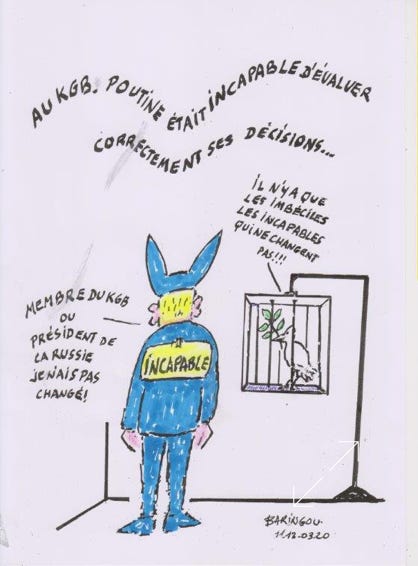 AU KGB. POUTINE ÉTAIT INCAPABLE D'ÉVALUER
CORRECTEMENT SES DÉCISIONS...
IL N'Y A QUE
LES IMBÉCILES
LES INCAPABLES
QUI NE CHANGENT
PAS!!!
MEMBRE DU KGB
OU
PRÉSIDENT DE
LA RUSSIE
JE N'AIS PAS
CHANGÉ!
INCAPABLE
BARINGOU.